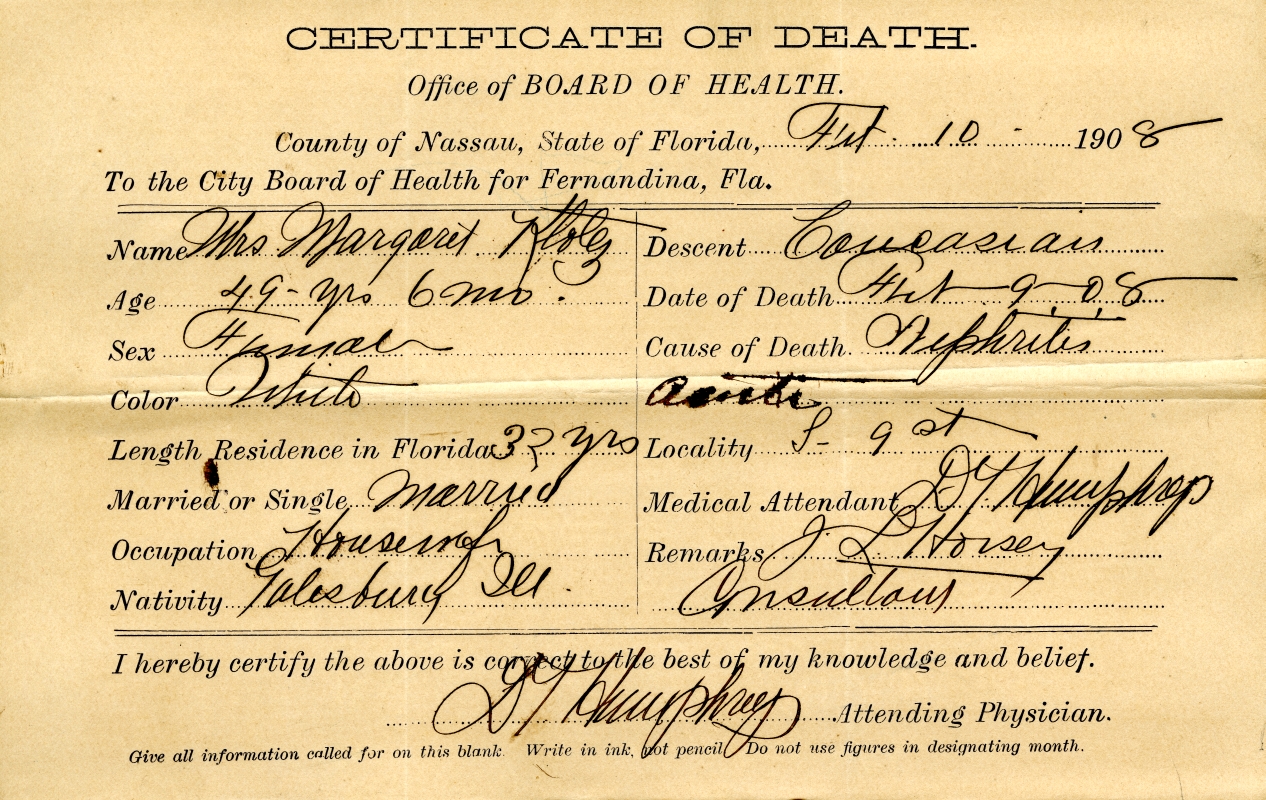 CERTIFICATE OF DEATH.
Office of BOARD OF HEALTH.
County of Nassau, State of Florida, Feb. 10 1908
To the City Board of Health for Fernandina, Fla.
Name Mrs. Margaret Klotz
Age 49 yrs 6 mo.
Sex Female
Color White
Length Residence in Florida 32 yrs
Married or Single Married
Occupation Housewife
Nativity Galesburg Ill.
Descent Caucasian
Date of Death Feb 9 08
Cause of Death. Nephritis
acute
Locality S- 9 st
Medical Attendant D Y Humphreys
Remarks J. L Horsey
Consultant
I hereby certify the above is correct to the best of my knowledge and belief.
D Y Humphreys Attending Physician.
Give all information called for on this blank. Write in ink, not pencil. Do not use figures in designating month.